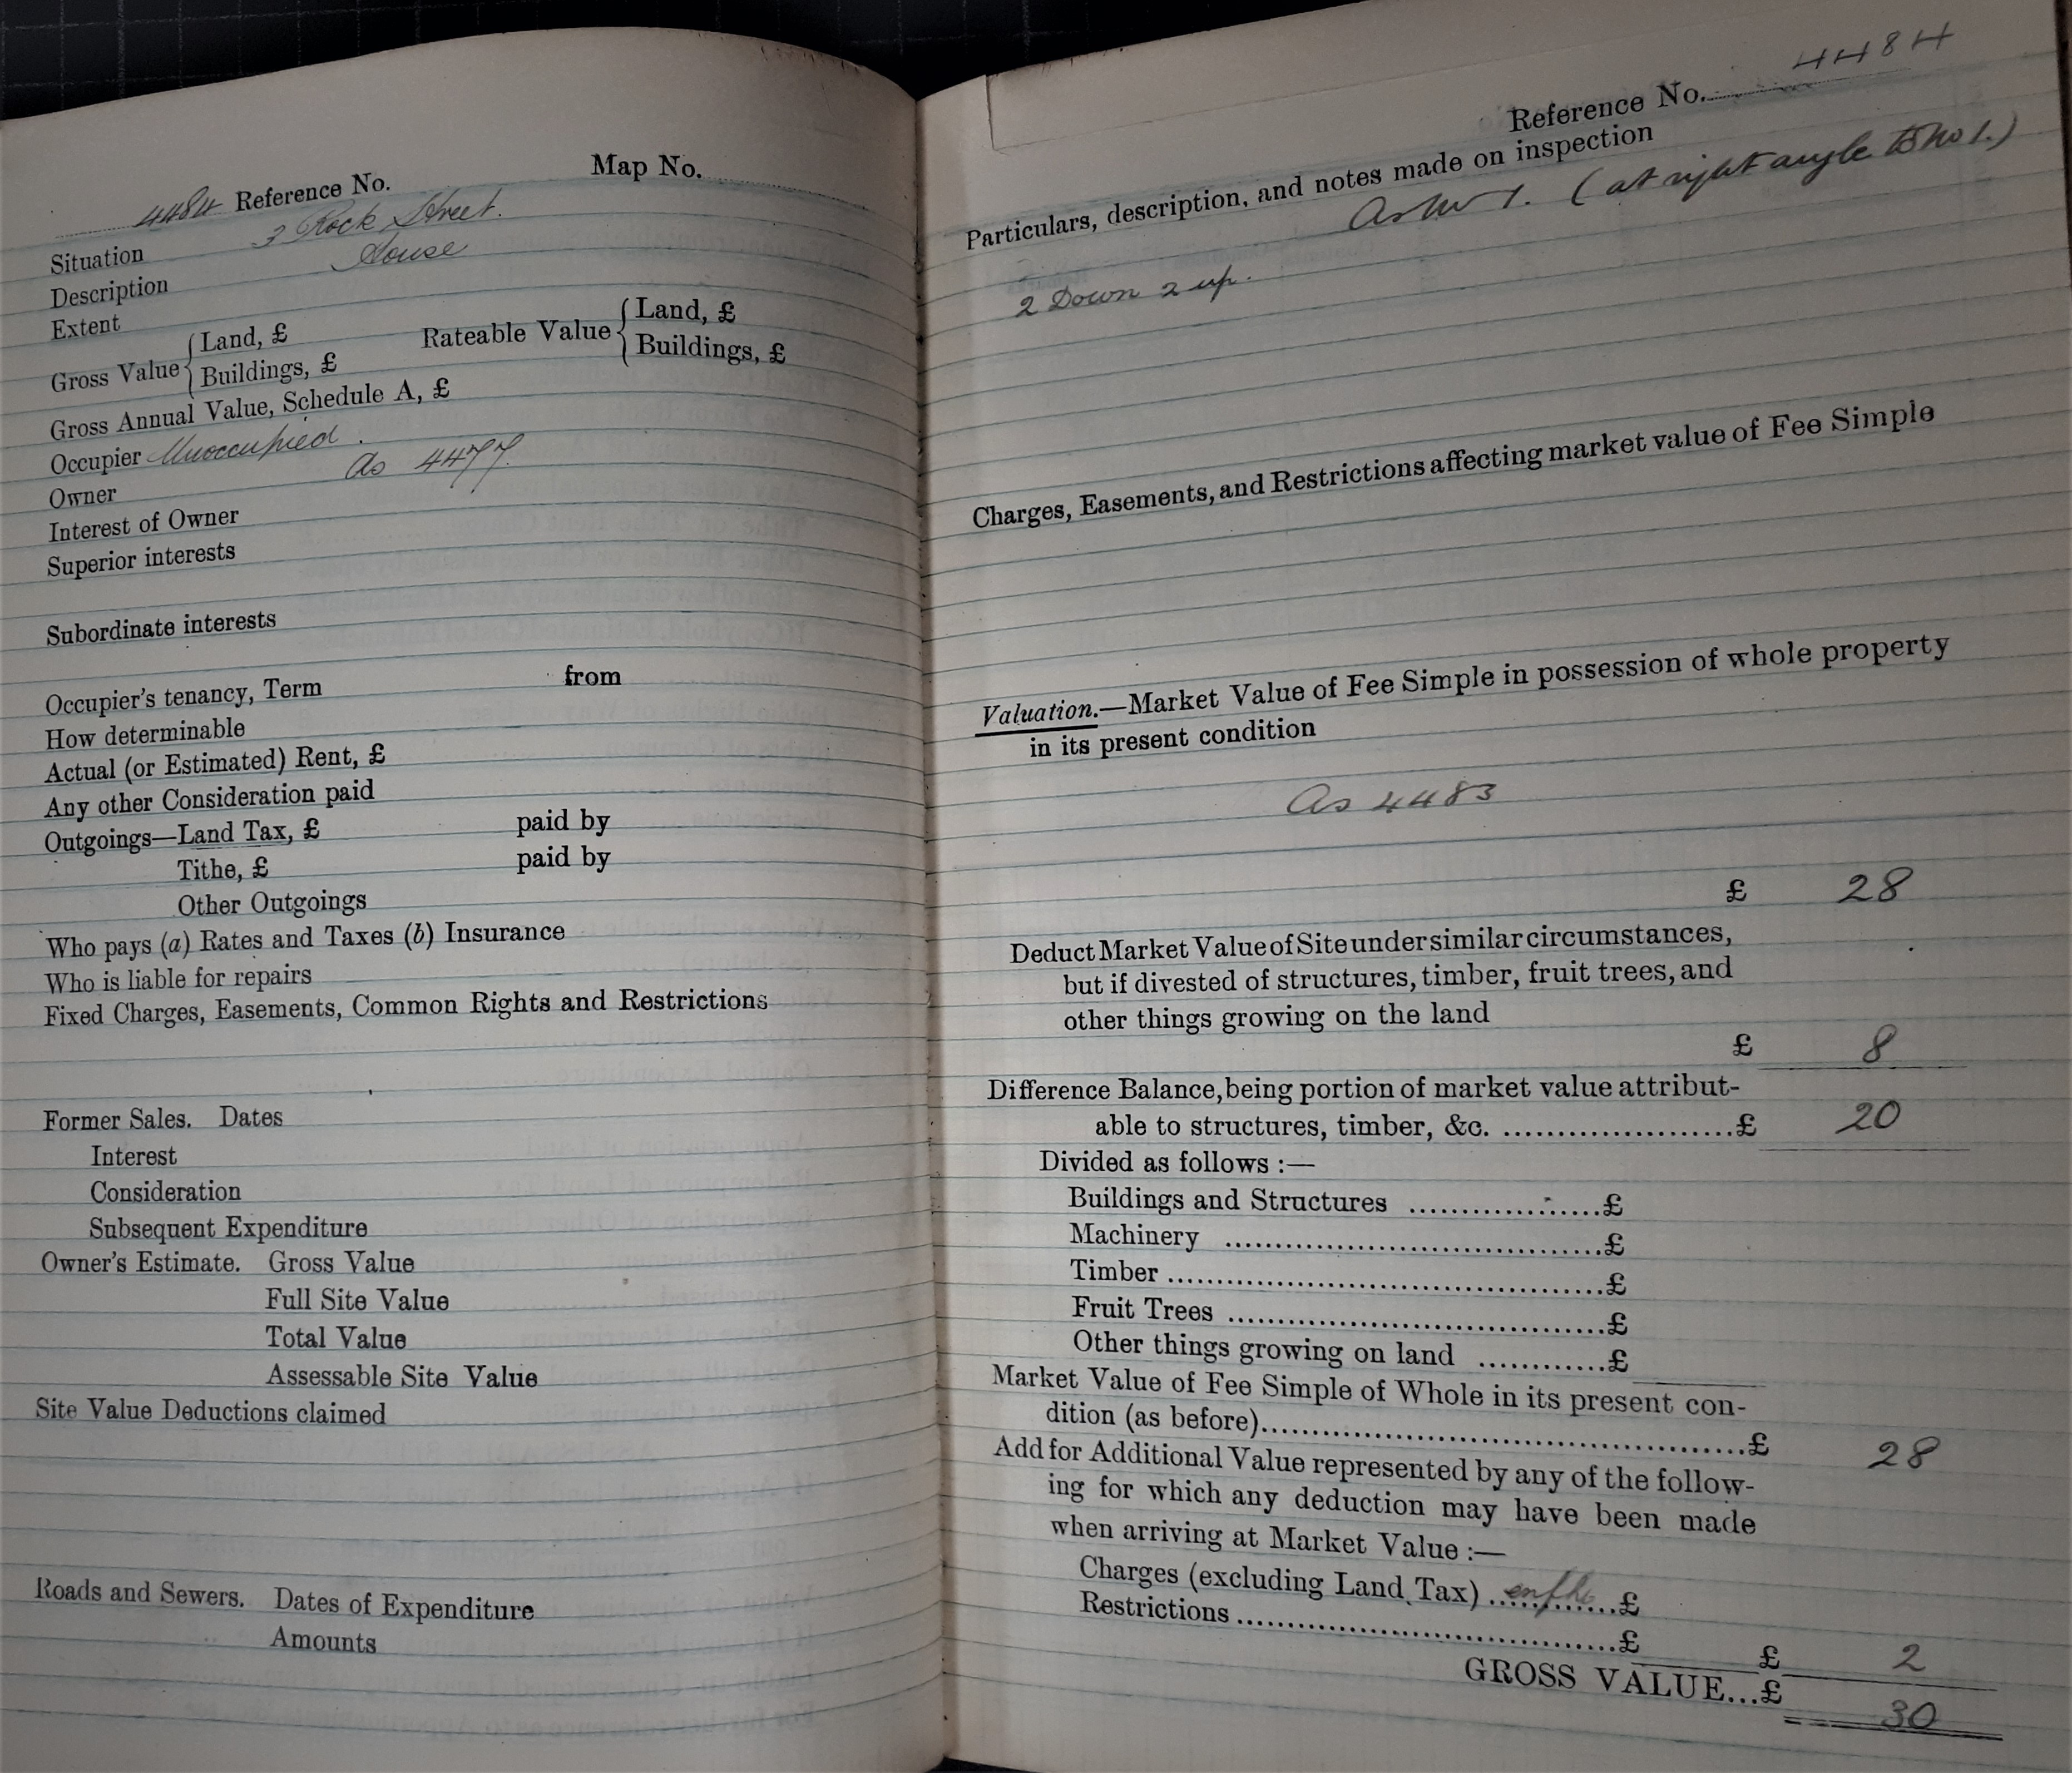 4484 Reference No. Map No.
Situation 3 Rock Street.
Description House
Extent
Gross Value { Land, £ Rateable Value { Land, £
Buildings, £ Buildings, £
Gross Annual Value, Schedule A, £
Occupier Unoccupied.
Owner As 4477.
Interest of Owner
Superior interests
Subordinate interests
Occupier's tenancy, Term from
How determinable
Actual (or Estimated) Rent, £
Any other Consideration paid
Outgoings—Land Tax, £ paid by
Tithe, £ paid by
Other Outgoings
Who pays (a) Rates and Taxes (b) Insurance
Who is liable for repairs
Fixed Charges, Easements, Common Rights and Restrictions
Former Sales. Dates
Interest
Consideration
Subsequent Expenditure
Owner's Estimate. Gross Value
Full Site Value
Total Value
Assessable Site Value
Site Value Deductions claimed
Roads and Sewers. Dates of Expenditure
Amounts
Reference No. 4484
Particulars, description, and notes made on inspection
As No 1. (at right angle to No 1.)
2 Down 2 up.
Charges, Easements, and Restrictions affecting market value of Fee Simple
Valuation.—Market Value of Fee Simple in possession of whole property
in its present condition
As 4483
£ 28
Deduct Market Value of Site under similar circumstances,
but if divested of structures, timber, fruit trees, and
other things growing on the land
£ 8
Difference Balance, being portion of market value attribut-
able to structures, timber, &c. ......................£ 20
Divided as follows :—
Buildings and Structures ....................£
Machinery ....................................£
Timber ..........................................£
Fruit Trees ....................................£
Other things growing on land ............£
Market Value of Fee Simple of Whole in its present con-
dition (as before)..............................................£ 28
Add for Additional Value represented by any of the follow-
ing for which any deduction may have been made
when arriving at Market Value :—
Charges (excluding Land Tax) .............£
Restrictions .....................................£ £ 2
GROSS VALUE...£ 30